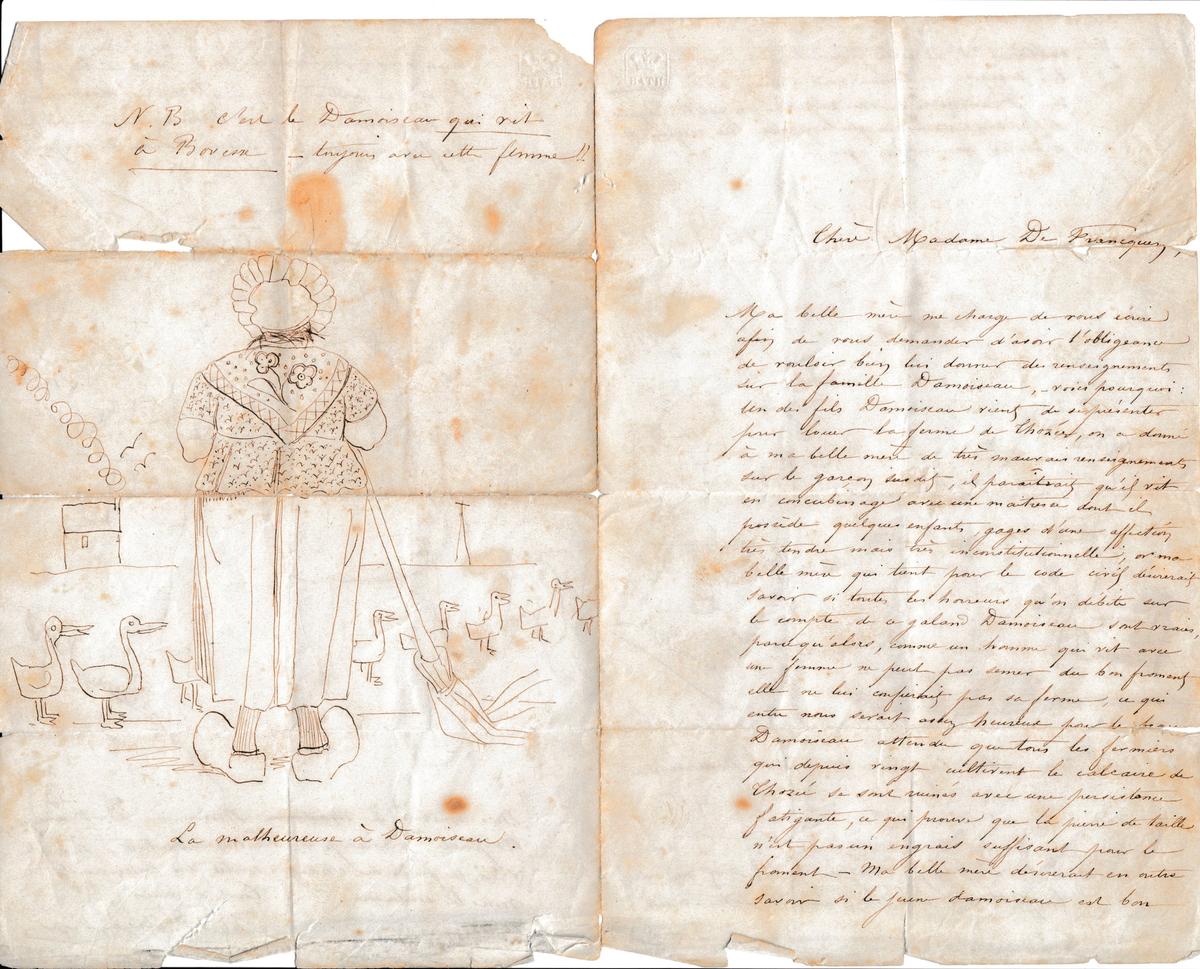 N. B C'est le Damoiseau qui vit
à Bovesse – toujours avec cette femme !!
La malheureuse à Damoiseau.
BATH
Chère Madame De Francquen,
Ma belle mère me charge de vous écrire
afin de vous demander d'avoir l'obligeance
de vouloir bien lui donner des renseignements
sur la famille Damoiseau, – voici pourquoi :
Un des fils Damoiseau vient de se présenter
pour louer la ferme de Thozée, on a donné
à ma belle mère de très mauvais renseignements
sur le garçon susdit, il paraîtrait qu'il vit
en concubinage avec une maîtresse dont il
possède quelques enfants, gages d'une affection
très tendre mais très inconstitutionnelle, or ma
belle mère qui tient pour le code civil désirerait
savoir si toutes les horreurs qu'on débite sur
le compte de ce galand Damoiseau sont vraies
parcequ'alors, comme un homme qui vit avec
une femme ne peut pas semer du bon froment
elle ne lui confierait pas sa ferme, ce qui
entre nous serait assez heureux pour le
Damoiseau attendu que tous les fermiers
qui depuis vingt cultivent le calcaire de
Thozée se sont ruinés avec une persistance
fatigante, ce qui prouve que la pierre de taille
n'est pas un engrais suffisant pour le
froment – Ma belle mère désirerait en outre
savoir si le jeune damoiseau est bon